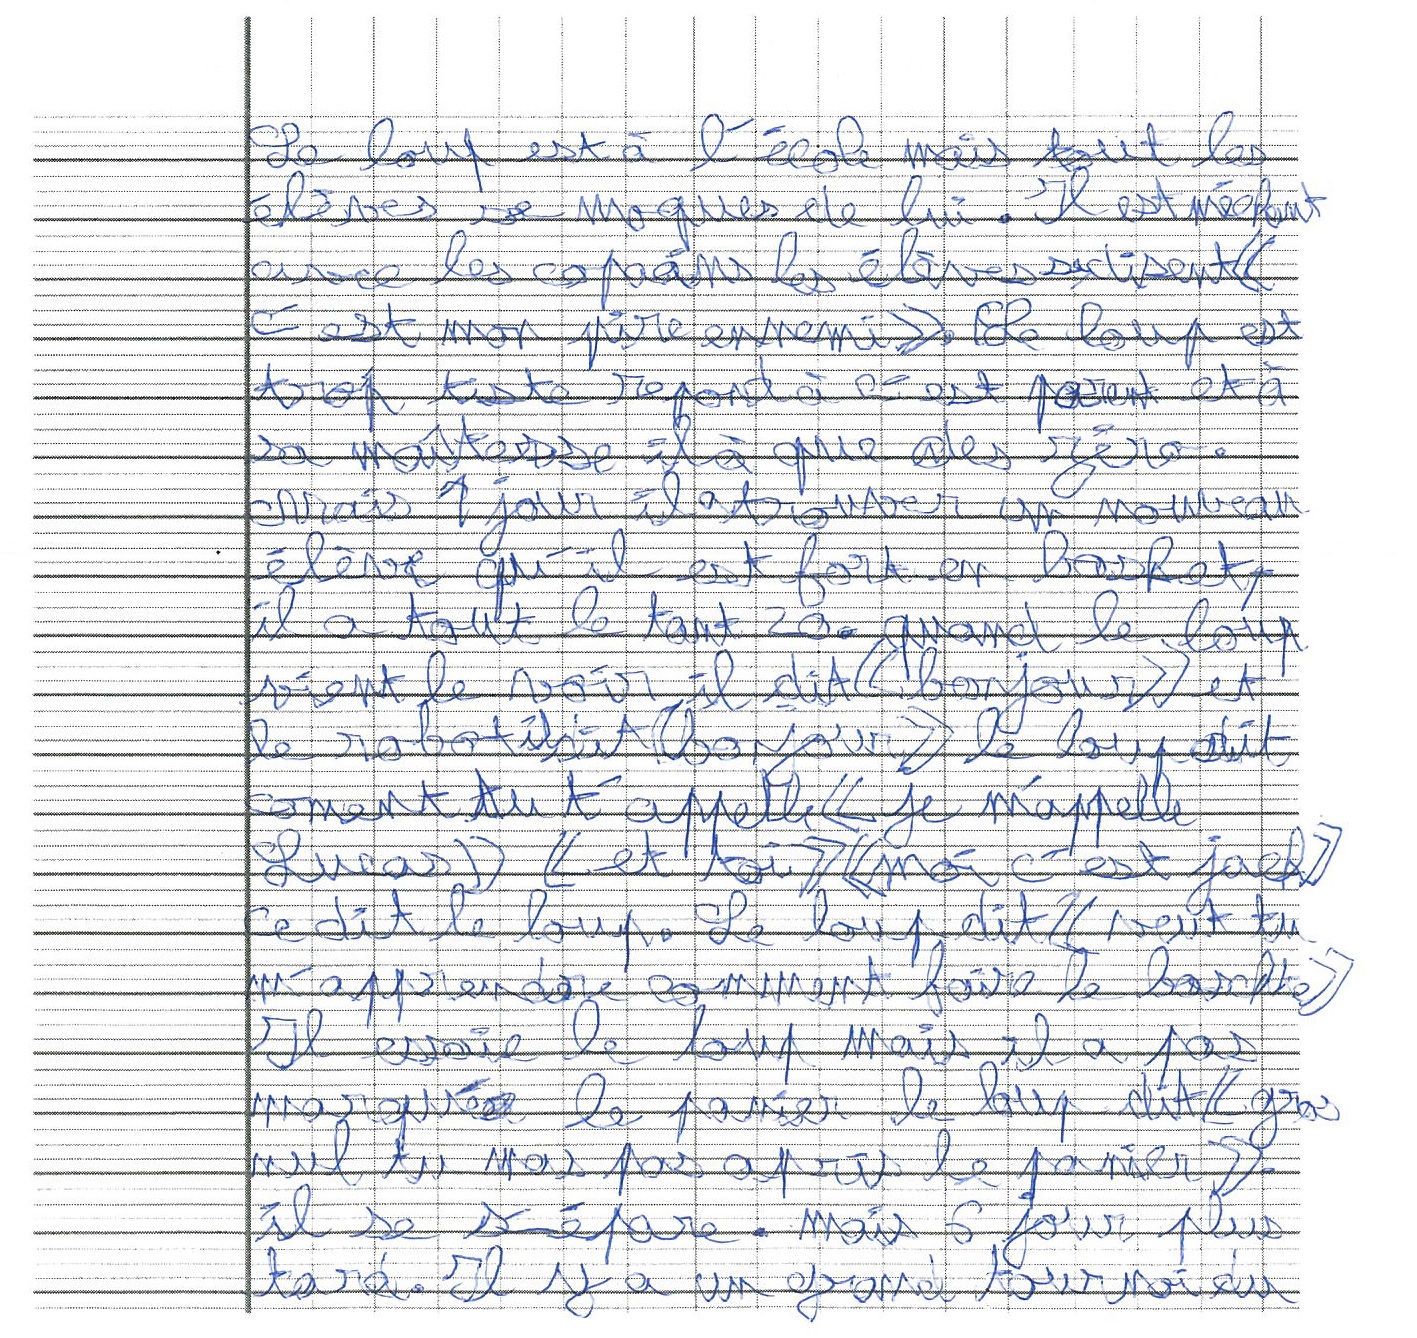 Le loup est à l'école mais tout les
élèves se moques de lui. Il est méchant
avec les copains les élèves disent «
c'est mon pire ennemi ». Le loup est
trop tiste repond à c'est parent et à
sa maîtesse il à que des zéro.
Mais 1 jour il a trouver un nouveau
élève qu'il est fort en basket,
il a tout le tant 20. quand le loup
vient le voir il dit « bonjour » et
le robot dit « bonjour » le loup dit
coment tu t'appelle « je m'appelle
Lucas » « et toi » « moi c'est jack »
ce dit le loup. Le loup dit « veut tu
m'apprendre comment faire le baskte »
Il essaie le loup mais il a pas
marquée le panier le loup dit « gros
nul tu mas pas apris le panier ».
il se s-épare. mais 6 jour plus
tard. Il y a un grand tournoi du